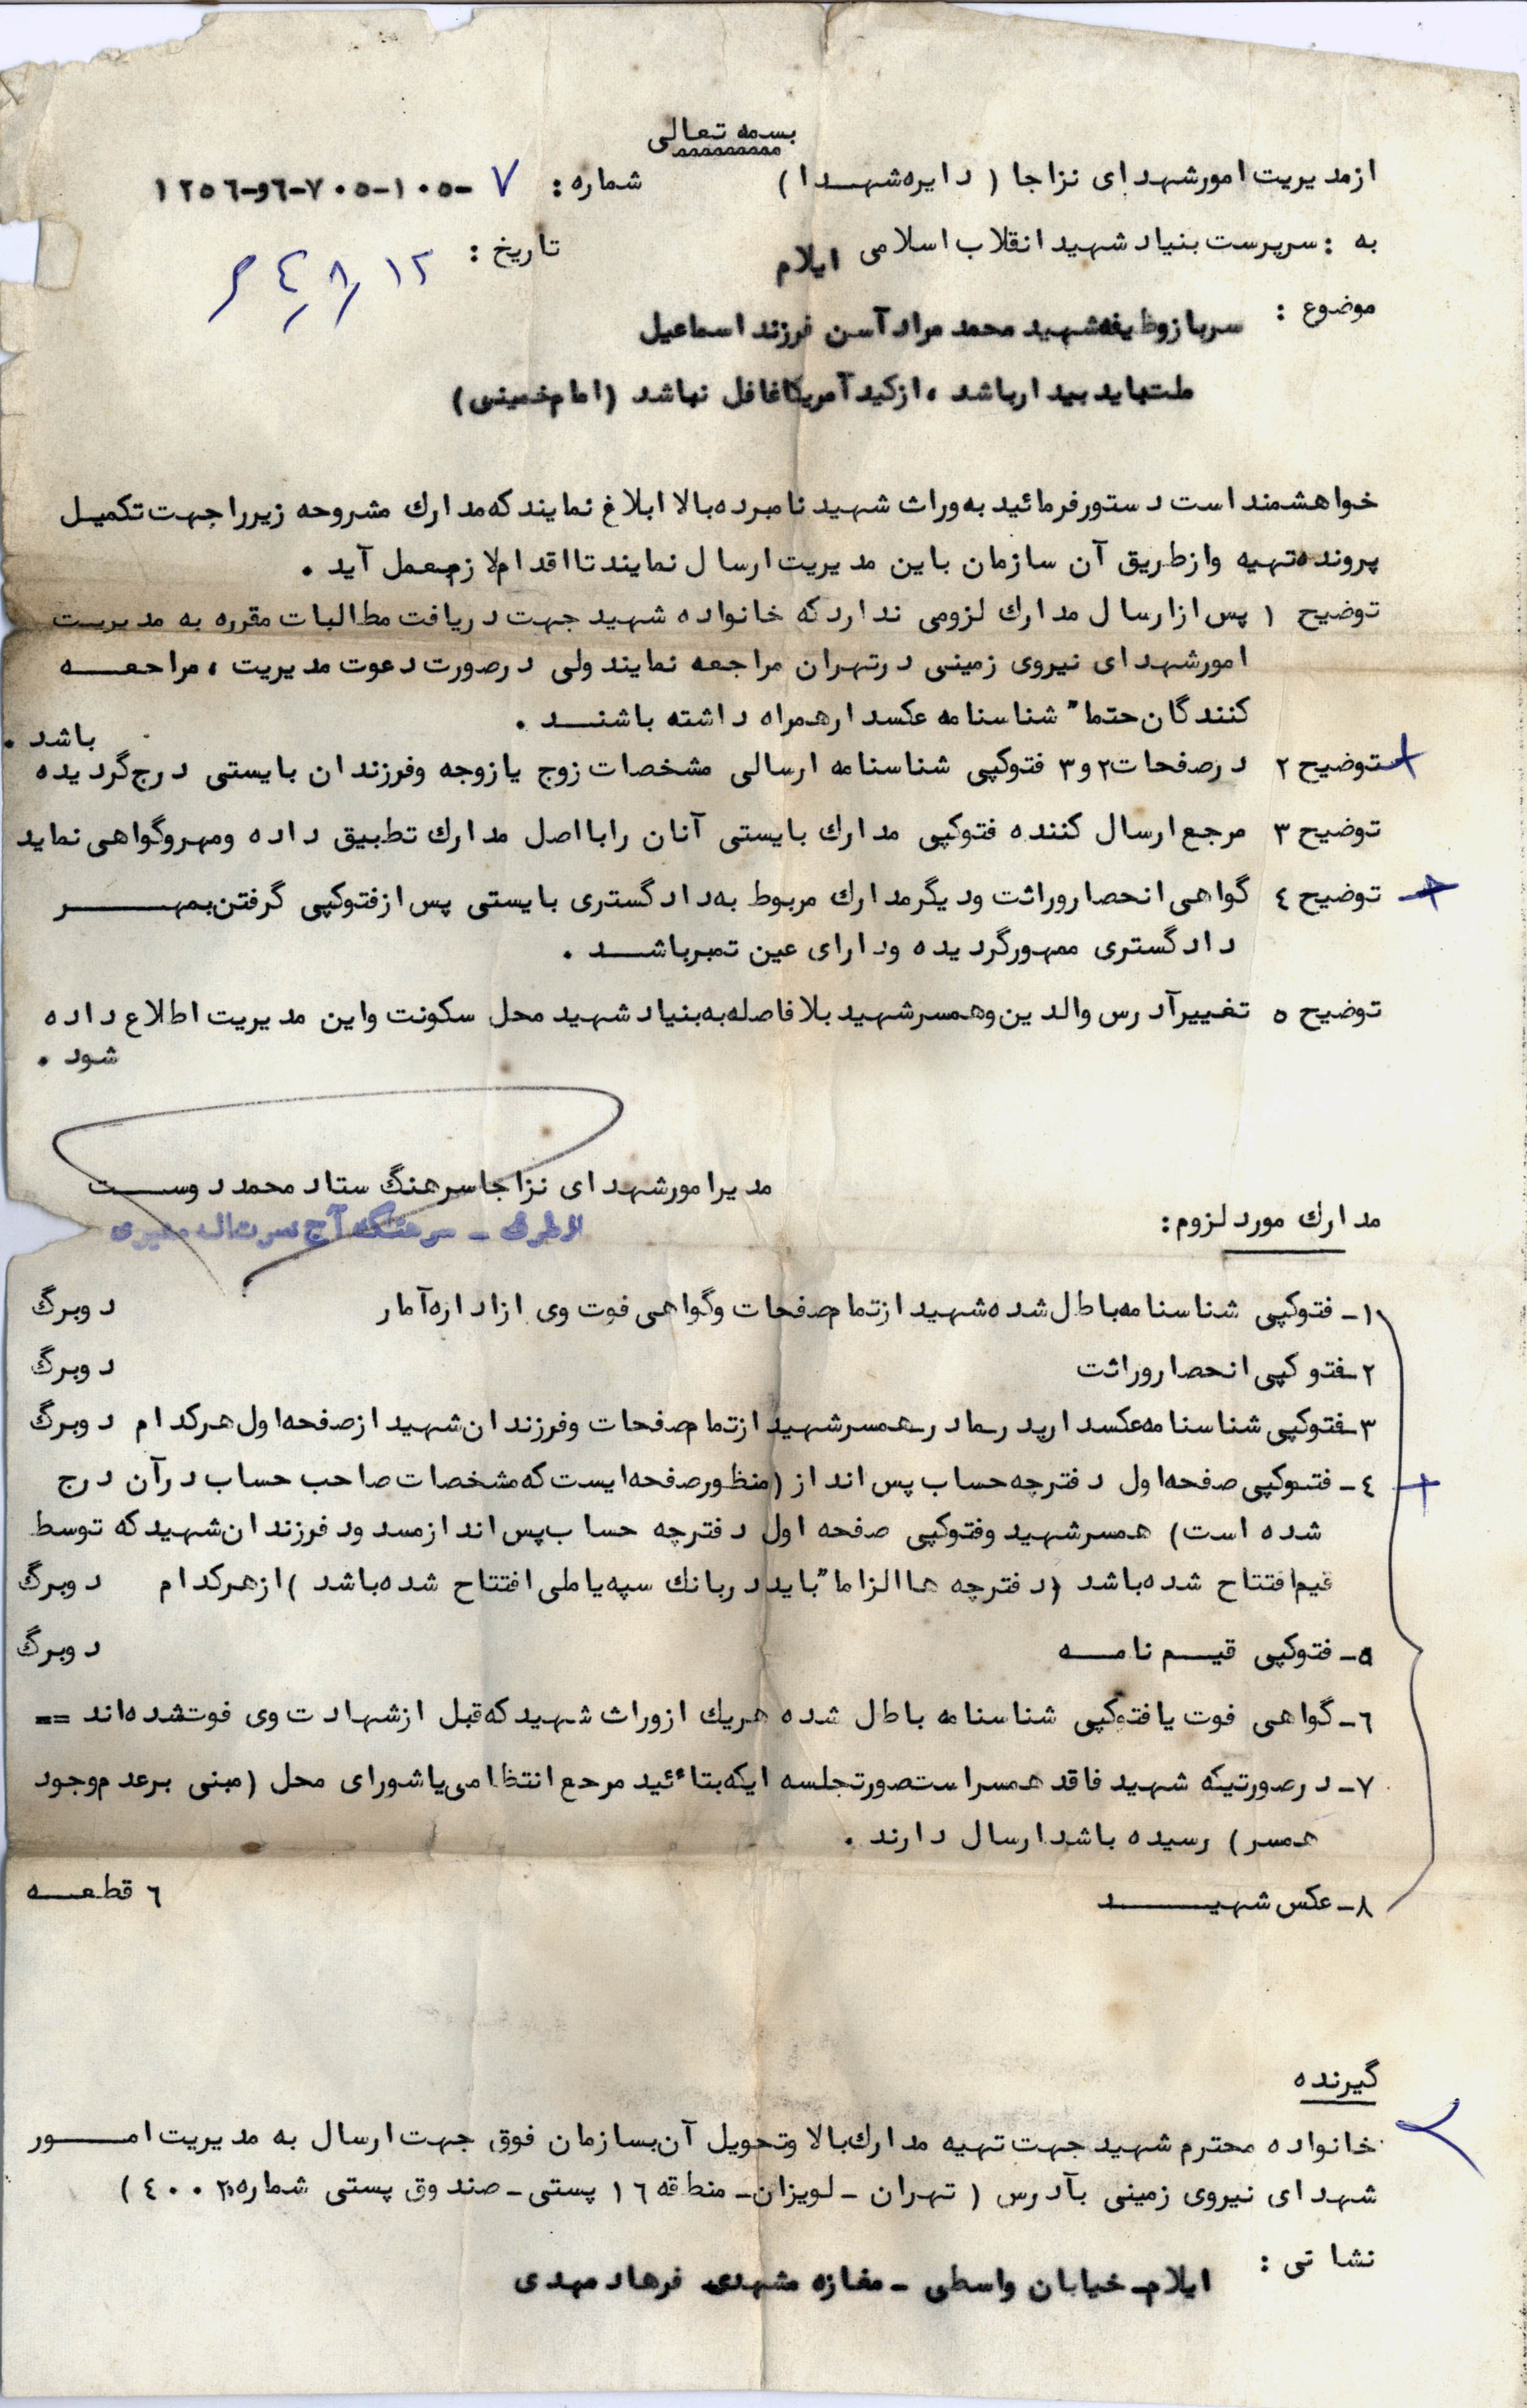 بسمه تعالی
ازمدیریت امورشهدای نزاجا ( دایره شهدا )
شماره : ۷ -۱۰۵-۷۰۵-۹۶و-۱۲۵۶
به : سرپرست بنیاد شهید انقلاب اسلامی ایلام
تاریخ : ۶۴٫۸٫۱۲
موضوع : سربازوظیفه شهید محمد مراد آسن فرزند اسماعیل
ملت باید بیدارباشد ، ازکید آمریکا غافل نباشد (امام خمینی)
خواهشمند است دستورفرمائید به وراث شهید نامبرده بالا ابلاغ نمایند که مدارك مشروحه زیررا جهت تکمیل
پرونده تهیه وازطریق آن سازمان باین مدیریت ارسال نمایند تا اقدام لازم بعمل آید .
توضیح ۱ پس ازارسال مدارك لزومی ندارد که خانواده شهید جهت دریافت مطالبات مقرره به مدیریت
امورشهدای نیروی زمینی درتهران مراجعه نمایند ولی درصورت دعوت مدیریت ، مراجعه
کنندگان حتما" شناسنامه عکسدارهمراه داشته باشند .
توضیح ۲ درصفحات ۲و۳ فتوکپی شناسنامه ارسالی مشخصات زوج یازوجه وفرزندان بایستی درج گردیده باشد .
توضیح ۳ مرجع ارسال کننده فتوکپی مدارك بایستی آنان رابااصل مدارك تطبیق داده ومهروگواهی نماید
توضیح ٤ گواهی انحصاروراثت ودیگرمدارك مربوط به دادگستری بایستی پس ازفتوکپی گرفتن بمهر
دادگستری ممهورگردیده ودارای عین تمبرباشد .
توضیح ٥ تغییرآدرس والدین وهمسرشهید بلافاصله به بنیاد شهید محل سکونت واین مدیریت اطلاع داده
شود .
مدیرامورشهدای نزاجا سرهنگ ستاد محمد دوست
ازطرف - سرهنگ آج
مدارك مورد لزوم :
۱- فتوکپی شناسنامه باطل شده شهید ازتمام صفحات وگواهی فوت وی ازاداره آمار دوبرگ
۲- فتوکپی انحصاروراثت دوبرگ
۳- فتوکپی شناسنامه عکسدارپدر-مادر-همسرشهید ازتمام صفحات وفرزندان شهید ازصفحه اول هرکدام دوبرگ
٤- فتوکپی صفحه اول دفترچه حساب پس انداز (منظورصفحه ایست که مشخصات صاحب حساب درآن درج
شده است) همسرشهید وفتوکپی صفحه اول دفترچه حساب پس اندازمسدود فرزندان شهید که توسط
قیم افتتاح شده باشد (دفترچه ها الزاما" باید دربانك سپه یاملی افتتاح شده باشد )ازهرکدام دوبرگ
۵- فتوکپی قیم نامه دوبرگ
٦- گواهی فوت یافتوکپی شناسنامه باطل شده هریك ازوراث شهید که قبل ازشهادت وی فوت شده اند ==
۷- درصورتیکه شهید فاقد همسراست صورتجلسه ایکه بتائید مرجع انتظامی یاشورای محل (مبنی برعدم وجود
همسر) رسیده باشد ارسال دارند .
۸- عکس شهید ٦ قطعه
گیرنده
خانواده محترم شهید جهت تهیه مدارك بالا وتحویل آن بسازمان فوق جهت ارسال به مدیریت امور
شهدای نیروی زمینی بآدرس ( تهران - لویزان- منطقه ۱٦ پستی - صندوق پستی شماره
نشانی : ایلام - خیابان واسطی - مغازه مشهدی فرهاد مهدی